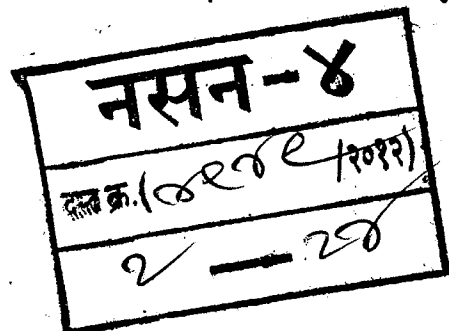 नसन-४
दस्त क्र. (४९४९/२०१२)
२ — २४